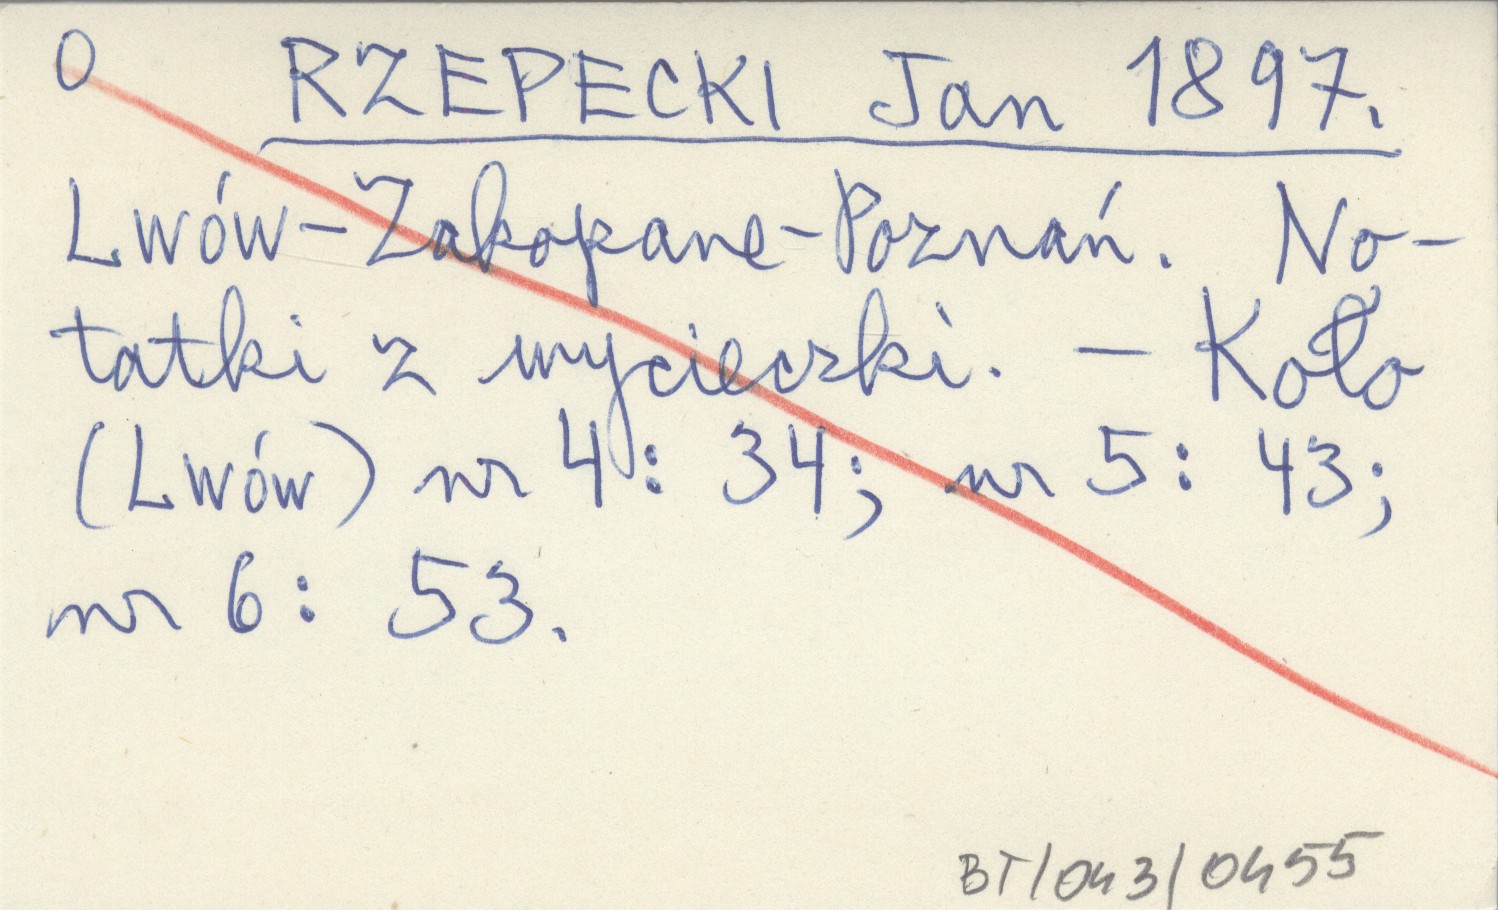 O RZEPECKI Jan 1897.
Lwów-Zakopane-Poznań. No-
tatki z wycieczki. — Koło
(Lwów) nr 4: 34; nr 5: 43;
nr 6: 53.
BT/043/0455